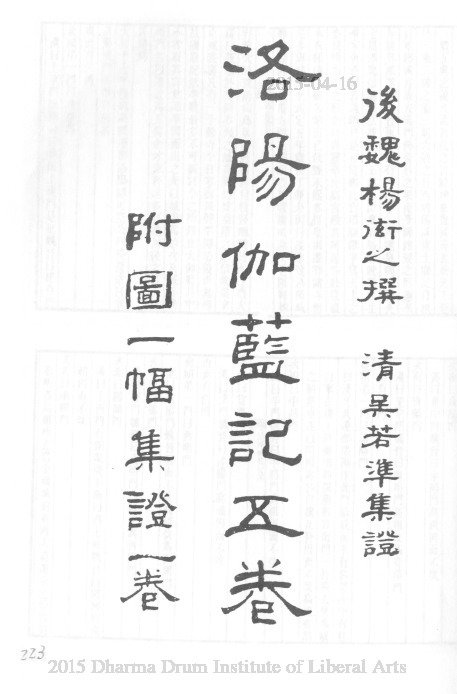 後魏楊衒之撰 清吳若準集證
洛陽伽藍記五卷
附圖一幅集證一卷
2015-04-16
223
2015 Dharma Drum Institute of Liberal Arts